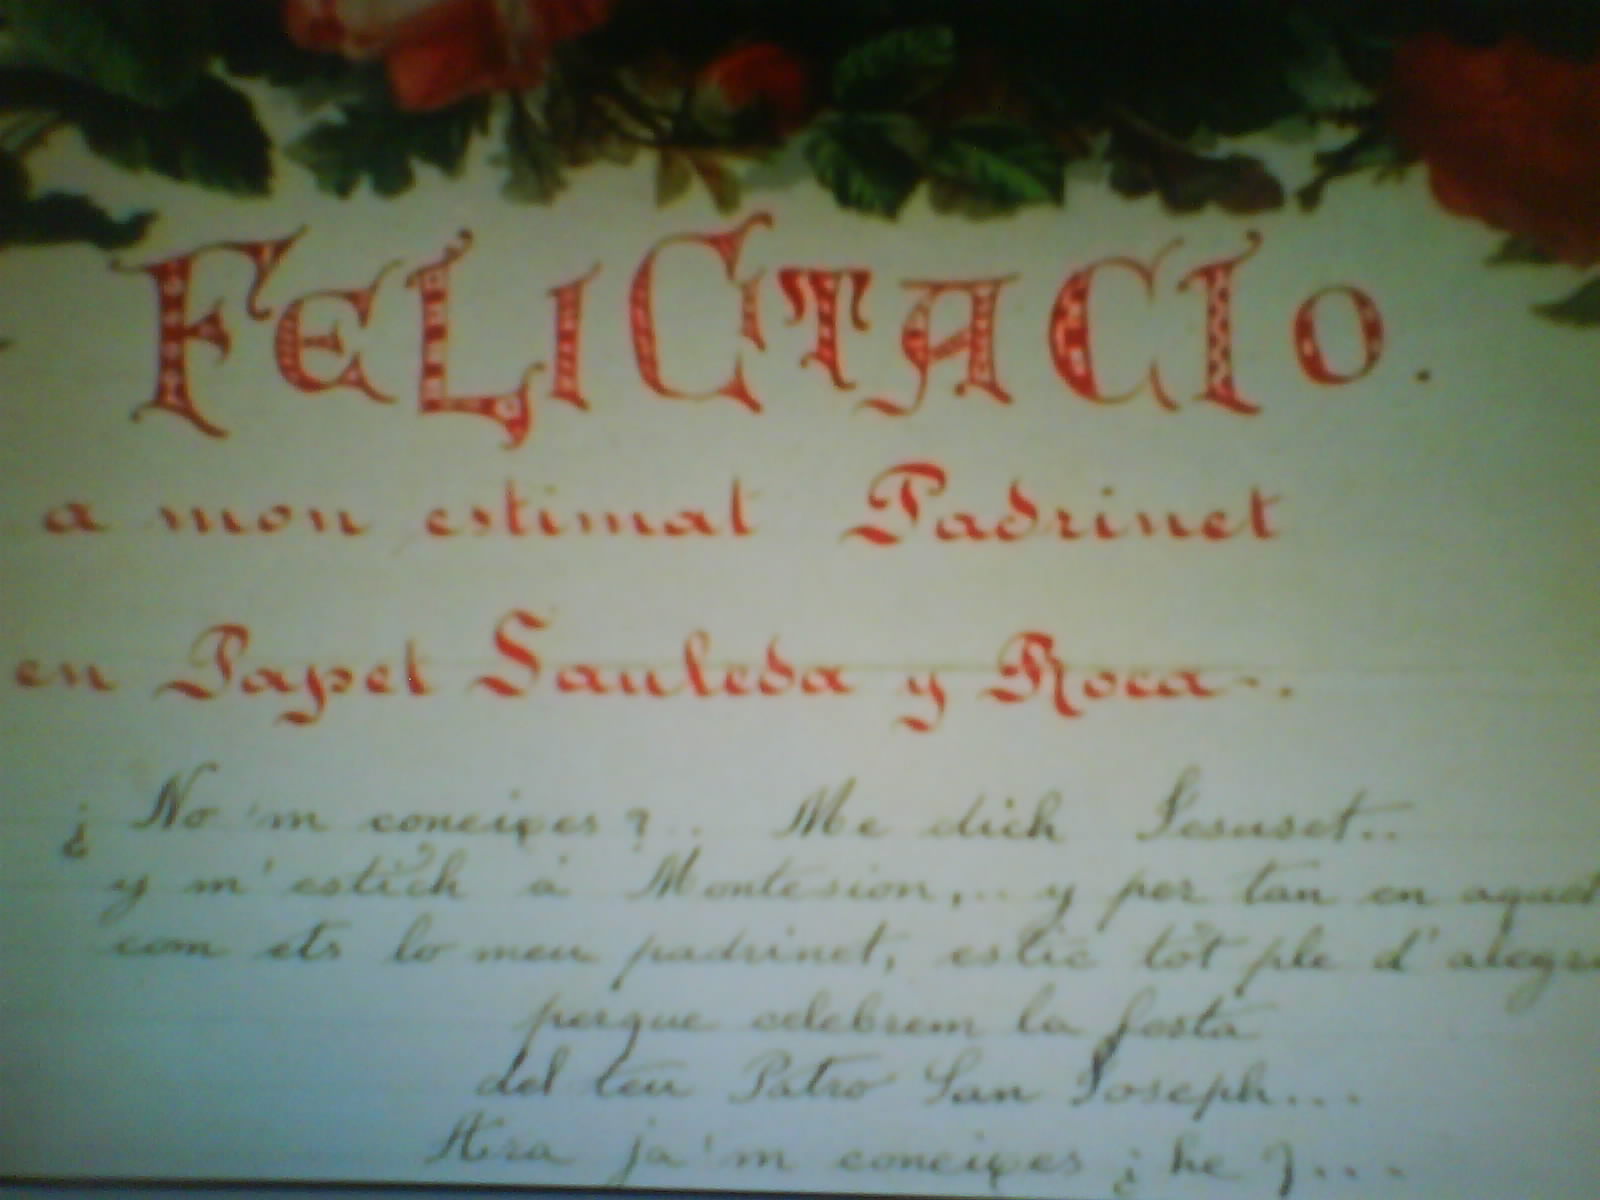 FELICITACIO.
a mon estimat Padrinet
en Papet Sauleda y Roca.
¿ No 'm coneixes ?.. Me dich Jesuset..
y m' estich á Montesion,.. y per tan en aquet
com ets lo meu padrinet, estic tot ple d' alegr
perque celebrem la festa
del teu Patro San Joseph...
Ara ja 'm coneixes ¿ he ?...